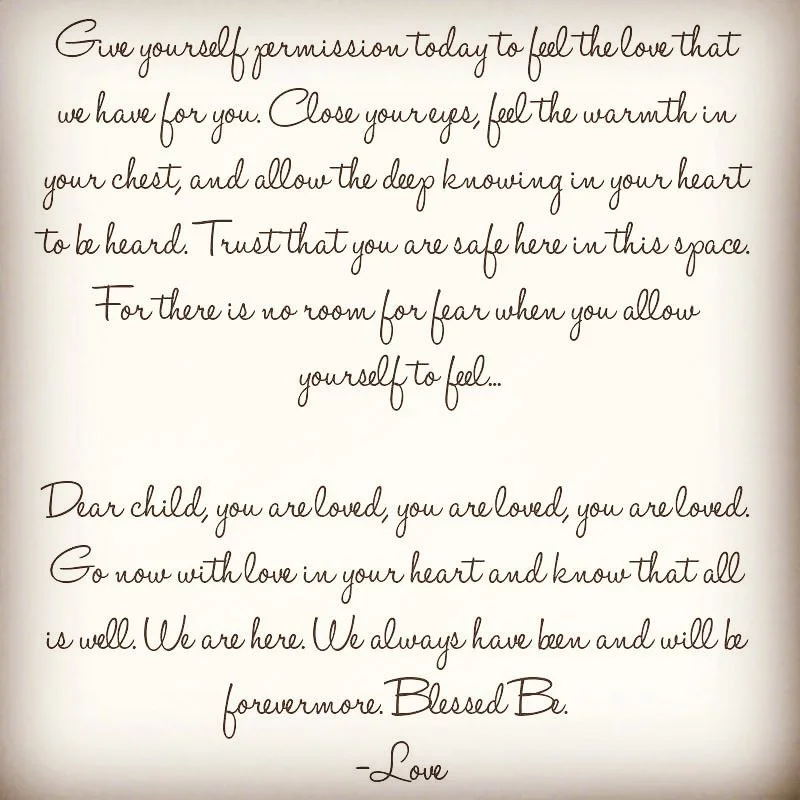 Give yourself permission today to feel the love that
we have for you. Close your eyes, feel the warmth in
your chest, and allow the deep knowing in your heart
to be heard. Trust that you are safe here in this space.
For there is no room for fear when you allow
yourself to feel...
Dear child, you are loved, you are loved, you are loved.
Go now with love in your heart and know that all
is well. We are here. We always have been and will be
forevermore. Blessed Be.
-Love